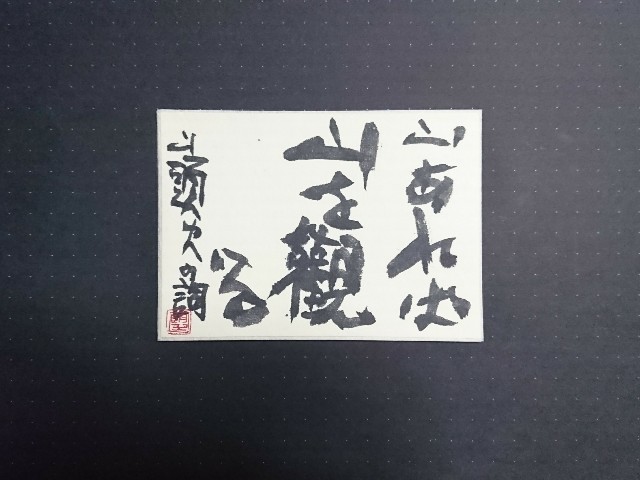 山あれば
山を觀
る
山頭火の詞